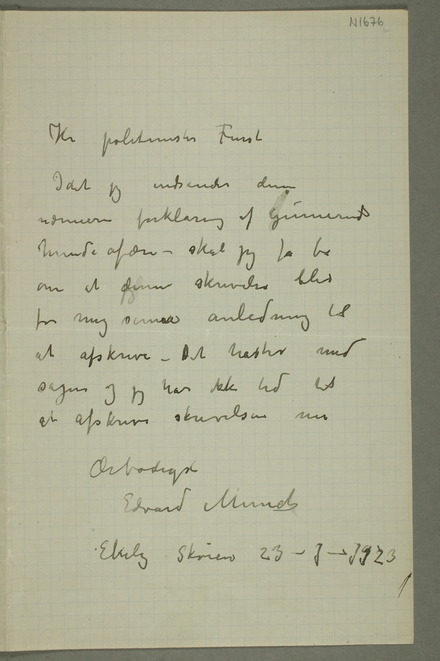 N1676
Hr politimester Furst
Idet jeg indsender denne
nærmere forklaring af Gunnerud
hunde afæren – skal jeg få be
om at denne skrivelse blir
for mig senere anledning til
at afskrive – Det haster med
sagen og jeg har ikke tid til
at afskrive skrivelsen nu
Ærbødigst
Edvard Munch
Ekely Skøien 23 – – 1923